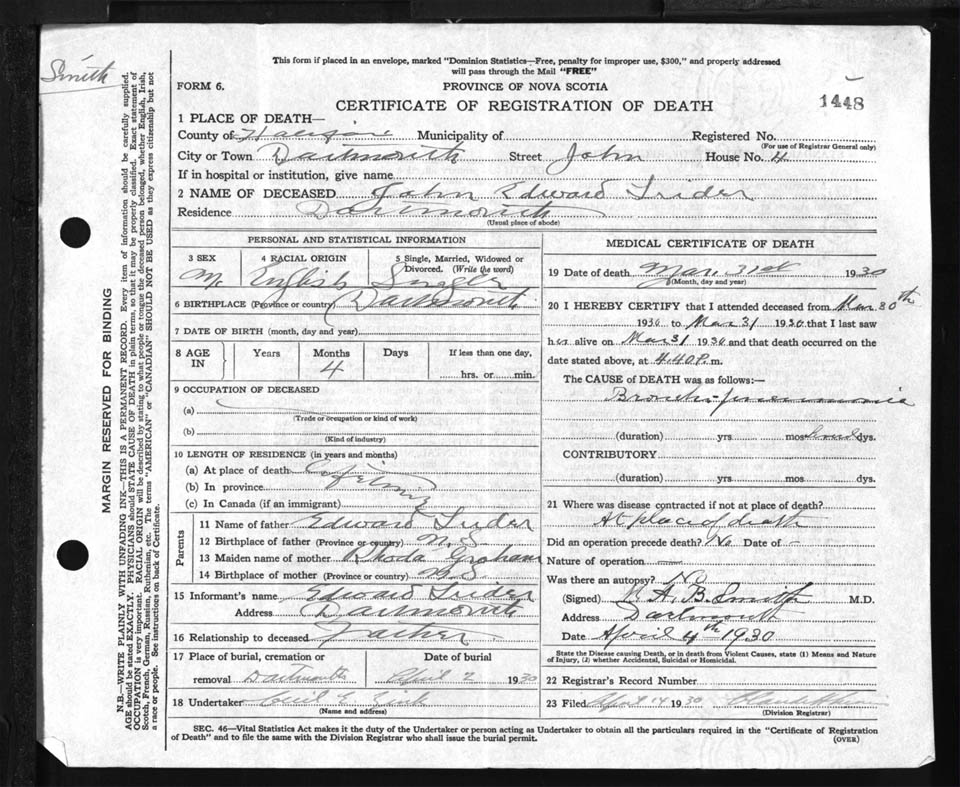 Smith
This form if placed in an envelope, marked "Dominion Statistics—Free, penalty for improper use, $300," and properly addressed
will pass through the Mail "FREE"
FORM 6.
PROVINCE OF NOVA SCOTIA
CERTIFICATE OF REGISTRATION OF DEATH
1448
1 PLACE OF DEATH—
County of Halifax Municipality of Registered No.
(For use of Registrar General only)
City or Town Dartmouth Street John House No. 4
If in hospital or institution, give name
2 NAME OF DECEASED John Edward Trider
Residence Dartmouth
(Usual place of abode)
PERSONAL AND STATISTICAL INFORMATION
3 SEX 4 RACIAL ORIGIN 5 Single, Married, Widowed or
Divorced. (Write the word)
M English Single
6 BIRTHPLACE (Province or country) Dartmouth
7 DATE OF BIRTH (month, day and year)
8 AGE IN Years Months Days If less than one day,
4
hrs. or min.
9 OCCUPATION OF DECEASED
(a)
(Trade or occupation or kind of work)
(b)
(Kind of industry)
10 LENGTH OF RESIDENCE (in years and months)
(a) At place of death Lifetime
(b) In province
(c) In Canada (if an immigrant)
Parents
11 Name of father Edward Trider
12 Birthplace of father (Province or country) N.S.
13 Maiden name of mother Rhoda Graham
14 Birthplace of mother (Province or country) N.S.
15 Informant's name Edward Trider
Address Dartmouth
16 Relationship to deceased Father
17 Place of burial, cremation or Date of burial
removal Dartmouth April 2 1930
18 Undertaker Cecil E. Zink
(Name and address)
MEDICAL CERTIFICATE OF DEATH
19 Date of death Mar. 31st 1930
(Month, day and year)
20 I HEREBY CERTIFY that I attended deceased from Mar 30th
1930 to Mar 31 1930 that I last saw
him alive on Mar 31 1930 and that death occurred on the
date stated above, at 4.40 P. m.
The CAUSE of DEATH was as follows:—
Broncho-pneumonia
(duration) yrs mos dys.
CONTRIBUTORY
(duration) yrs mos dys.
21 Where was disease contracted if not at place of death?
At place of death
Did an operation precede death? No Date of –
Nature of operation —
Was there an autopsy? No
(Signed) M. A. B. Smith M.D.
Address Dartmouth
Date April 4th 1930
State the Disease causing Death, or in death from Violent Causes, state (1) Means and Nature
of Injury, (2) whether Accidental, Suicidal or Homicidal.
22 Registrar's Record Number
23 Filed April 14 1930
(Division Registrar)
SEC. 46—Vital Statistics Act makes it the duty of the Undertaker or person acting as Undertaker to obtain all the particulars required in the "Certificate of Registration
of Death" and to file the same with the Division Registrar who shall issue the burial permit.
(OVER)
MARGIN RESERVED FOR BINDING
N.B.—WRITE PLAINLY WITH UNFADING INK—THIS IS A PERMANENT RECORD. Every item of information should be carefully supplied.
AGE should be stated EXACTLY. PHYSICIANS should STATE CAUSE OF DEATH in plain terms, so that it may be properly classified. Exact statement of
OCCUPATION is very important. RACIAL ORIGIN will be described by stating to what people or tongue the deceased person belonged, whether English, Irish,
Scotch, French, German, Russian, Ruthenian, etc. The terms "AMERICAN" or "CANADIAN" SHOULD NOT BE USED as they express citizenship but not
a race or people. See instructions on back of Certificate.